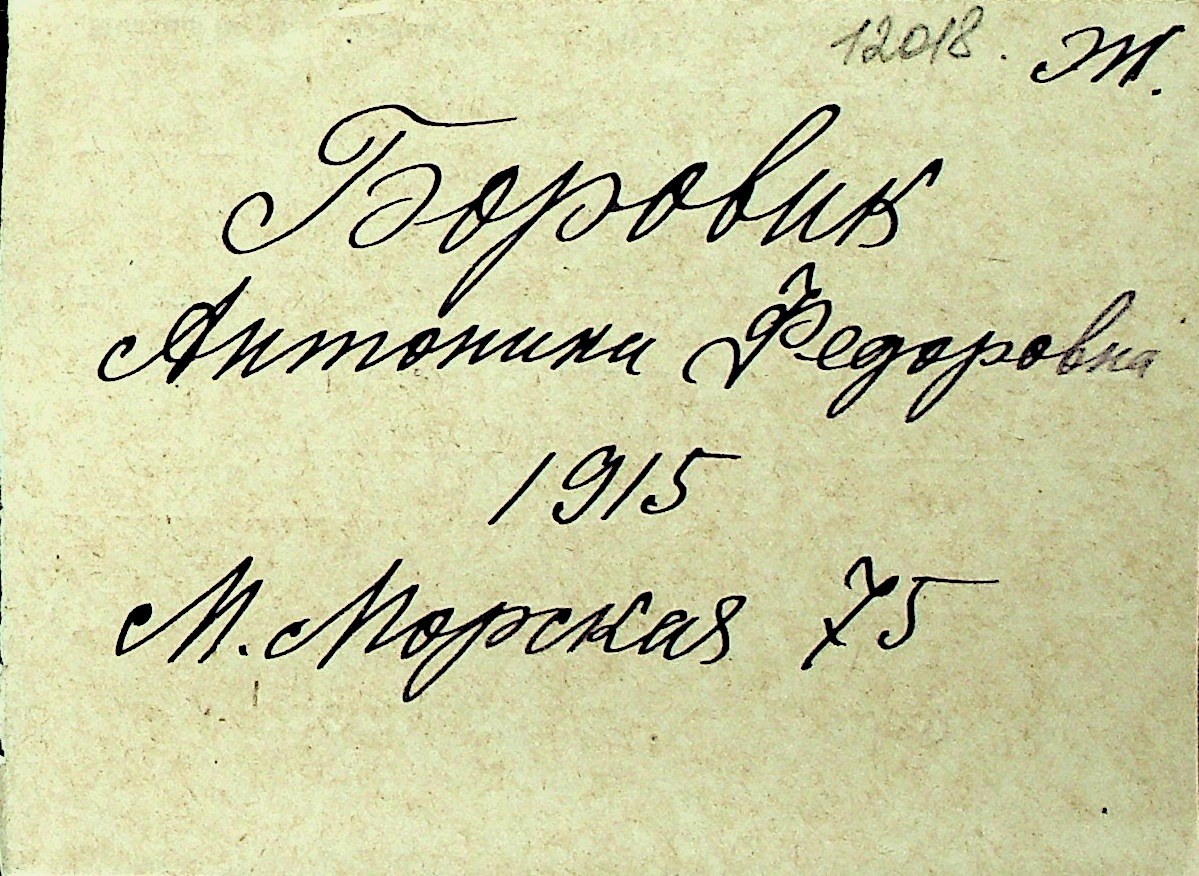 12018. Ж.
Боровик
Антонина Федоровна
1915
М. Морская 75